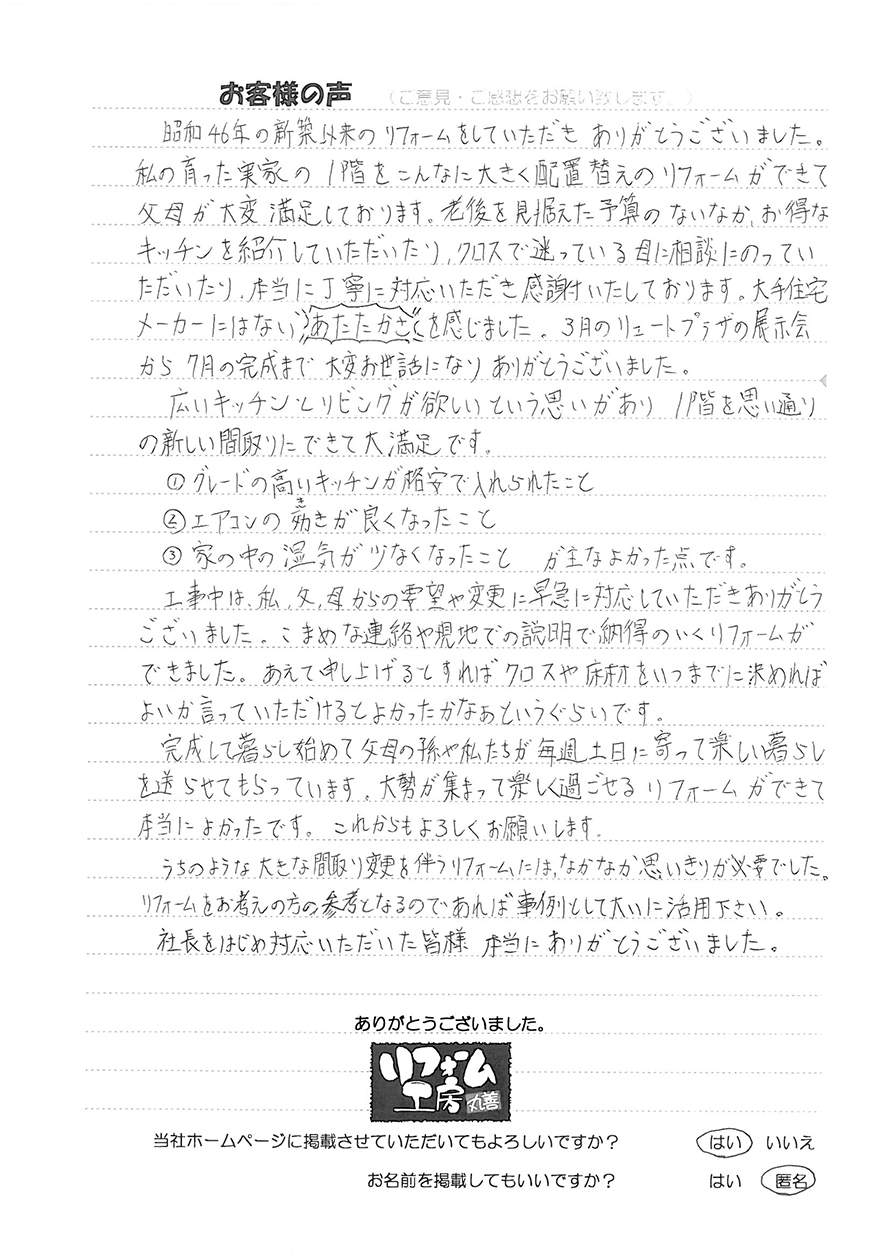 お客様の声 （ご意見・ご感想をお願い致します。）
昭和46年の新築以来のリフォームをしていただき ありがとうございました。
私の育った実家の 1階をこんなに大きく配置替えのリフォームができて
父母が大変満足しております。老後を見据えた予算のないなか、お得な
キッチンを紹介していただいたり、クロスで迷っている母に相談にのってい
ただいたり、本当に丁寧に対応いただき感謝いたしております。大手住宅
メーカーにはない あたたかさ を感じました。3月のリュートプラザの展示会
から 7月の完成まで 大変お世話になり ありがとうございました。
広いキッチンとリビングが欲しいという思いがあり 1階を思い通り
の新しい間取りにできて大満足です。
①グレードの高いキッチンが格安で入れられたこと
②エアコンの効きが良くなったこと
③家の中の湿気が少なくなったこと が主なよかった点です。
工事中は、私、父、母からの要望や変更に早急に対応していただきありがとう
ございました。こまめな連絡や現地での説明で納得のいくリフォームが
できました。あえて申し上げるとすればクロスや床材をいつまでに決めれば
よいか言っていただけるとよかったかなぁというぐらいです。
完成して暮らし始めて父母の孫や私たちが毎週土日に寄って楽しい暮らし
を送らせてもらっています。大勢が集まって楽しく過ごせるリフォームができて
本当によかったです。これからもよろしくお願いします。
うちのような大きな間取り変更を伴うリフォームには、なかなか思いきりが必要でした。
リフォームをお考えの方の参考となるのであれば事例として大いに活用下さい。
社長をはじめ対応いただいた皆様 本当にありがとうございました。
ありがとうございました。
リフォーム
工房 丸善
当社ホームページに掲載させていただいてもよろしいですか？ はい いいえ
お名前を掲載してもいいですか？ はい 匿名